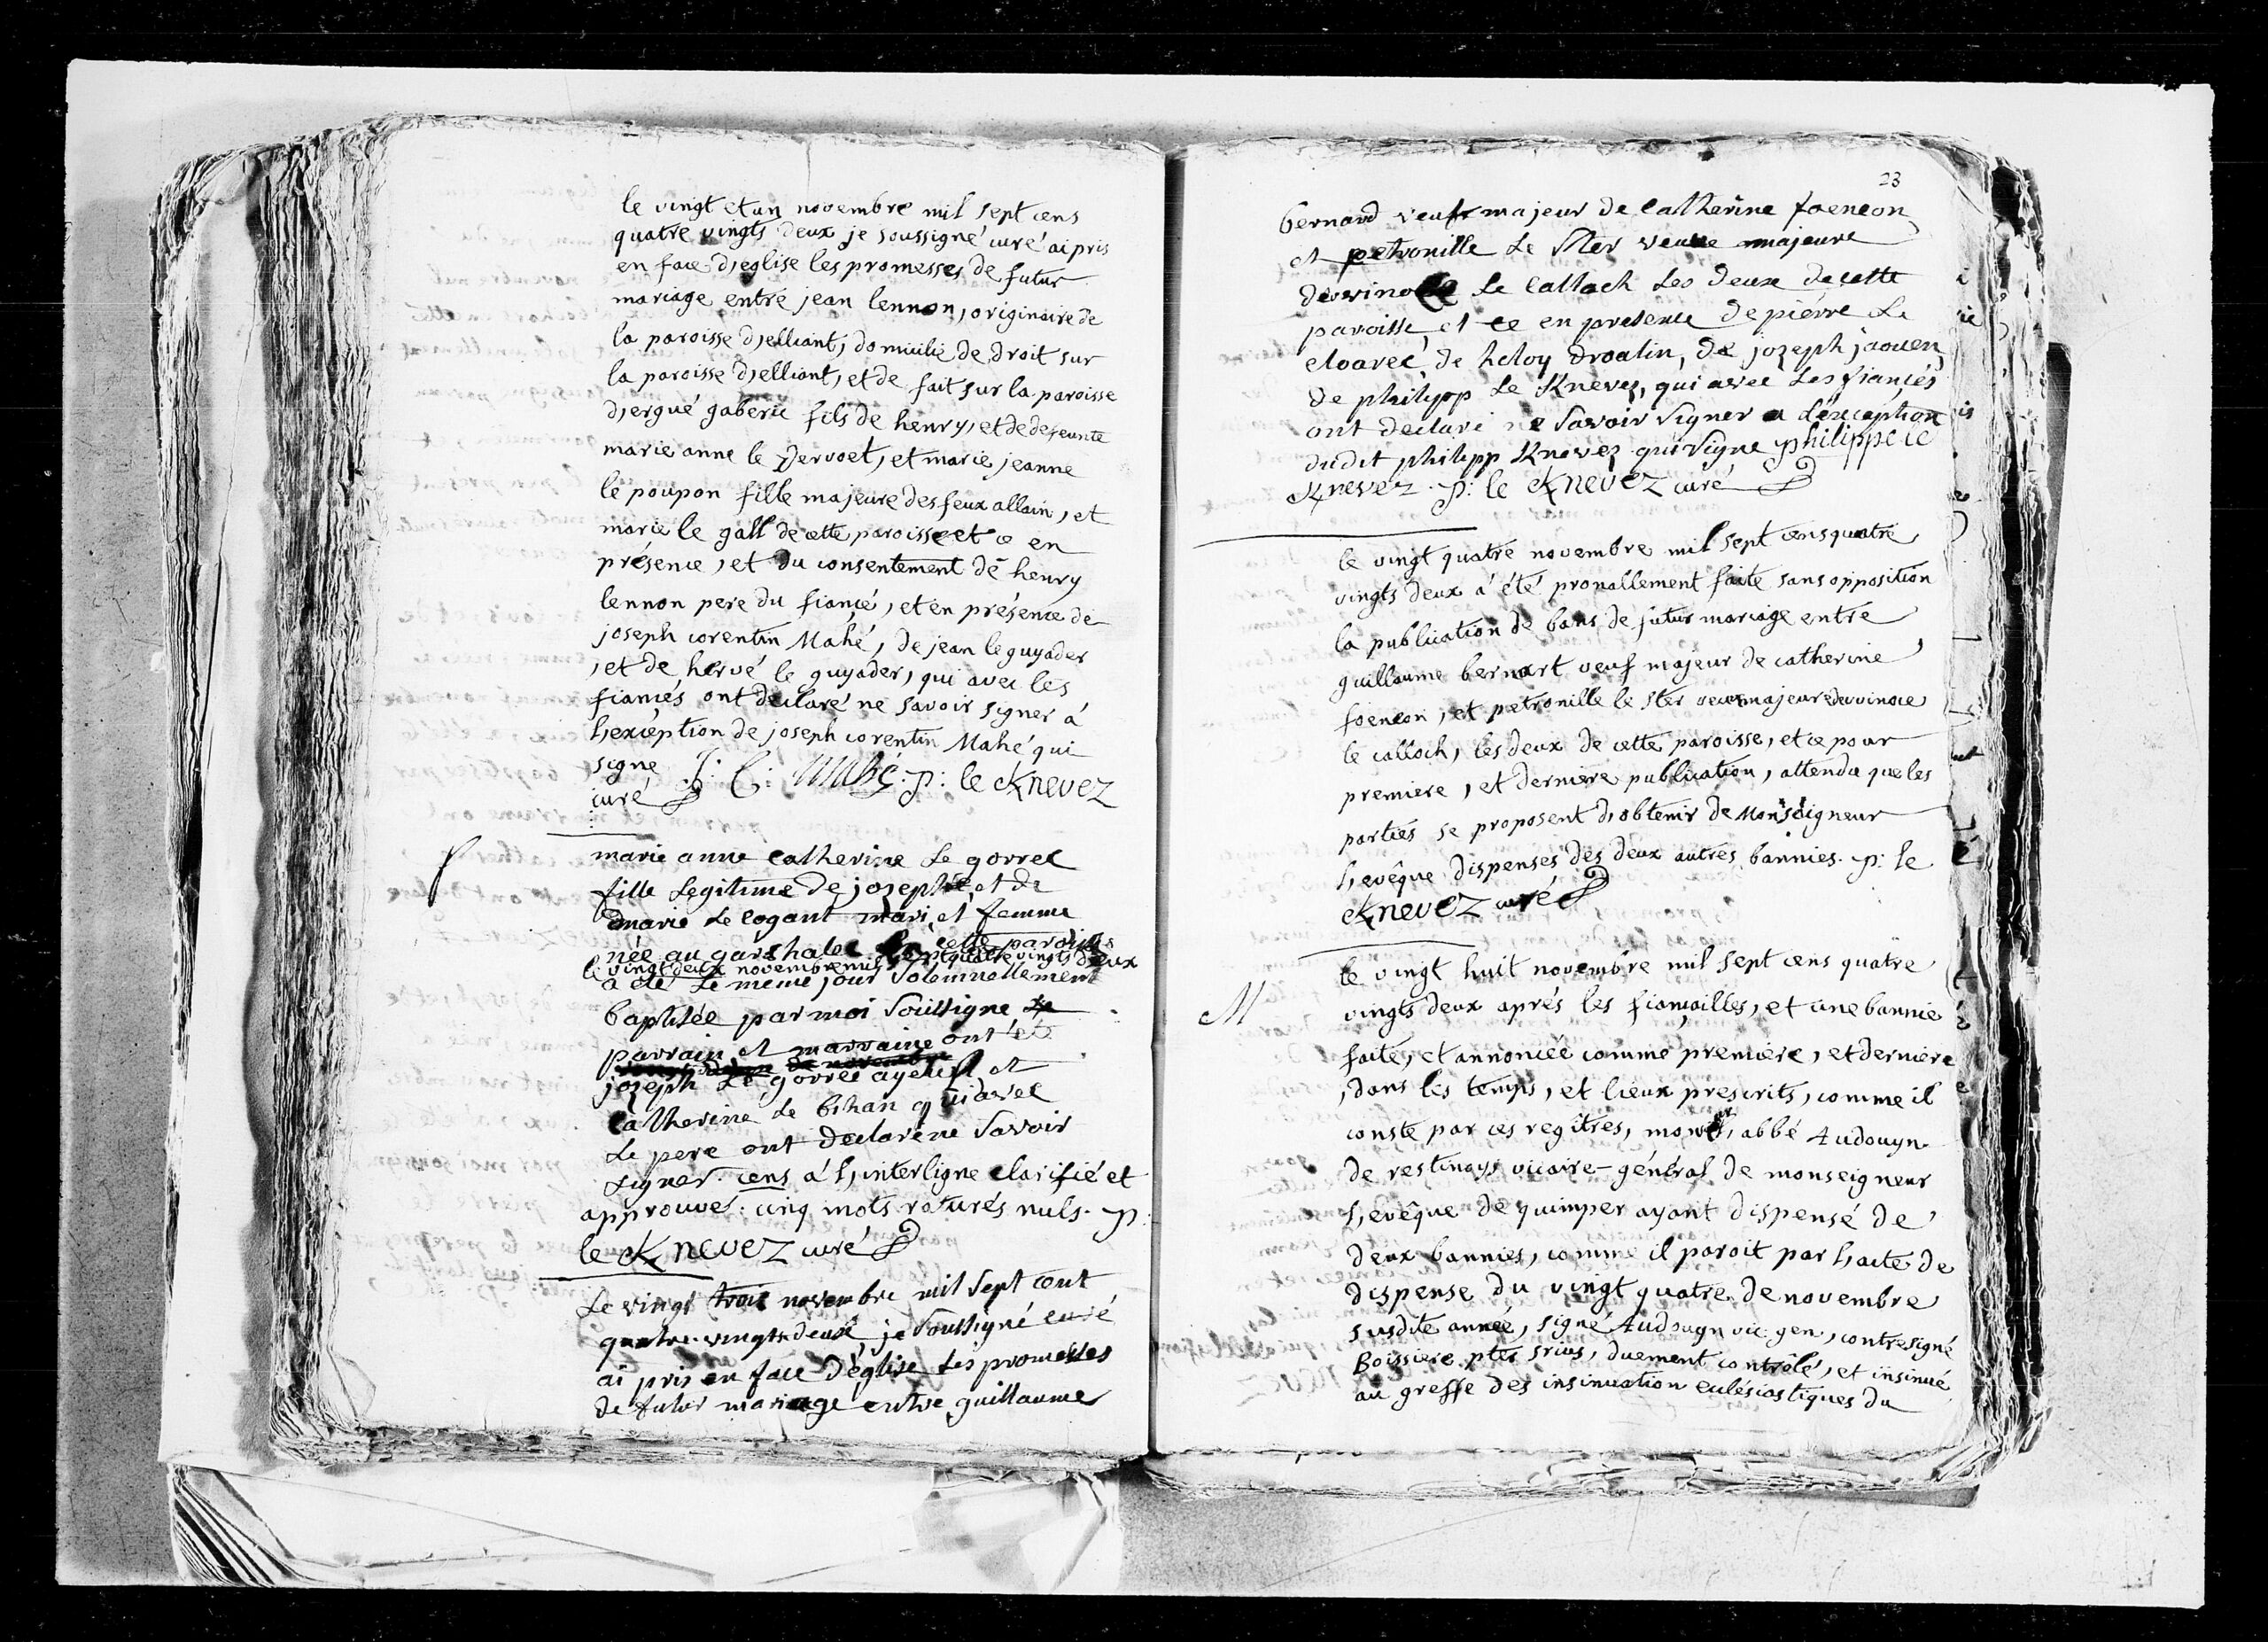 le vingt et un novembre mil sept cens
quatre vingts deux je soussigné curé ai pris
en face d,eglise les promesses de futur
mariage entre jean lennon, originaire de
la paroisse d,elliant, domicilié de droit sur
la paroisse d,elliant, et de fait sur la paroisse
d,ergué gaberic fils de henry, et de defeunte
marie anne le Dervoet, et marie jeanne
le poupon fille majeure des feux allain, et
marie le gall de cette paroisse et ce en
présence, et du consentement de henry
lennon pere du fiancé, et en présence de
joseph corentin Mahé, de jean le guyader
, et de hervé le guyader, qui avec les
fiancés ont declaré ne savoir signer à
l,exception de joseph corentin Mahé qui
signe J: C: Mahé. p: le Knevez
curé
marie anne catherine Le gorrec
fille Legitime de jozeph et de
marie Le cogant mari et femme
née au garshalec cette paroisse
le vingt deux novembre mil sept quatre vingts deux
a été Le meme jour Solemnellement
baptisée par moi Soussigne
parrain et marraine ont été
jozeph Le gorrec ayeul et
Catherine Le bihan qui avec
Le pere ont declaré ne Savoir
Signer. cens à l,interligne clarifié et
approuvé. cinq mots raturés nuls. p:
le Knevez curé
Le vingt trois novembre mil Sept cent
quatre-vingts-deux je Soussigné curé
ai pris en face d'église Les promesses
de futur mariage entre guillaume
23
bernard veuf majeur de Catherine foencon
et petronille Le Ster veuve majeure
de vinoce Le Calloch Les deux de cette
paroisse, et ce en presence de piérre Le
cloarec, de heloy droalin, de jozeph jaouen,
de philipp Le Knevez, qui avec Les fiancés
ont declaré ne Savoir Signer a L'exception
dudit philipp Knevez qui Signe philippe le
Knevez. p: le Knevez curé
le vingt quatre novembre mil sept cens quatre
vingts deux a été pronallement faite sans opposition
la publication de bans de futur mariage entre
guillaume bernart veuf majeur de catherine
foencon, et petronille le Ster veuve majeure de vinoce
le calloch, les deux de cette paroisse, et ce pour
premiere, et derniere publication, attendu que les
parties se proposent d,obtenir de Monseigneur
l,evêque dispenses des deux autres bannies. p: le
Knevez curé
M
le vingt huit novembre mil sept cens quatre
vingts deux aprés les fiançailles, et une bannie
faite, et annoncée comme premiere, et derniere
, dans les temps, et lieux prescrits, comme il
conste par ces regîtres, abbé Audouyn
de restinays vicaire-général de monseigneur
l,evêque de quimper ayant dispensé de
deux bannies, comme il paroit par l,acte de
dispense du vingt quatre de novembre
susdite année, signé Audouyn vic. gen, contresigné
Boissiere ptes srius, duement contrôlé, et insinué
au greffe des insinuation eclésiastiques du